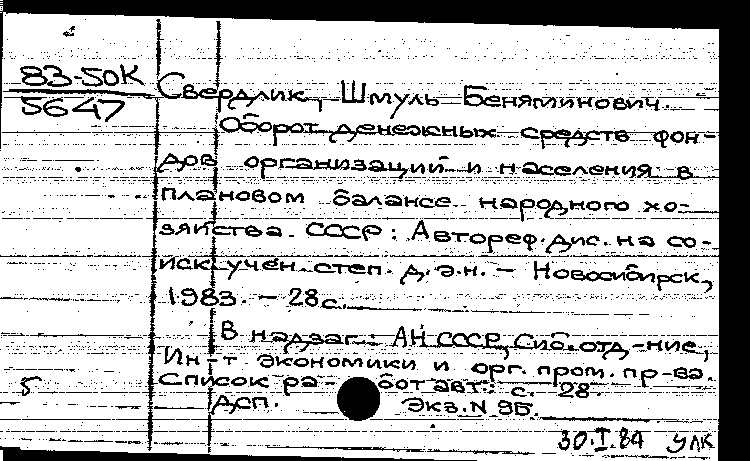 83-50К
5647
Свердлик, Шмуль Беняминович.
Оборот денежных средств фон-
дов организаций и населения в
плановом балансе народного хо-
зяйства СССР: Автореф. дис. на со-
иск. учен. степ. д.э.н. – Новосибирск,
1983. – 28 с.
В надзаг.: АН СССР, Сиб. отд-ние,
Ин-т экономики и орг. пром. пр-ва.
Список работ авт.: с. 28.
5
Дсп. Экз. N 95.
30.I.84 УЛК